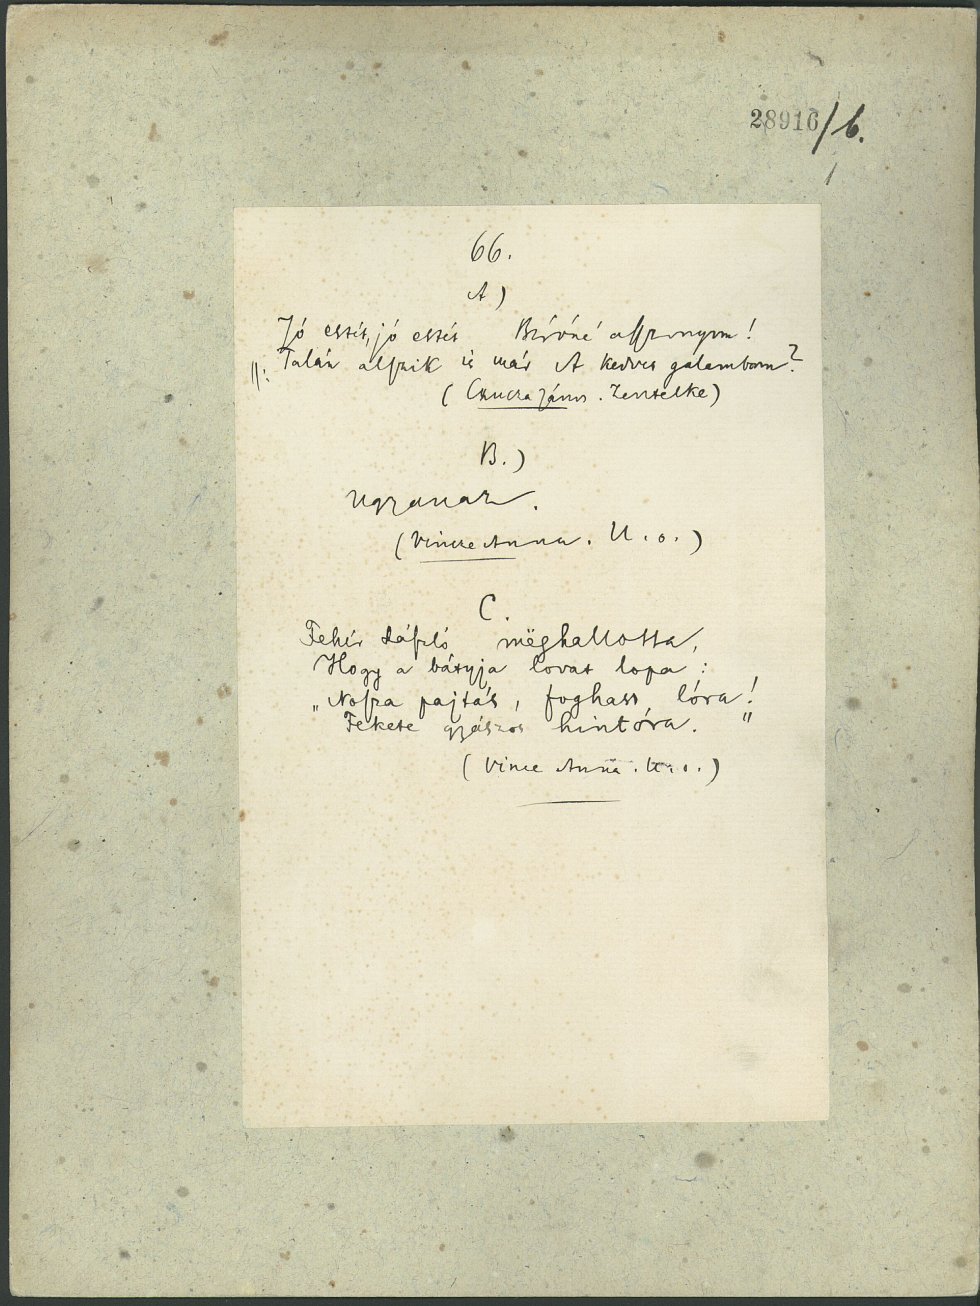 28916/b.
66.
A)
Jó estét, jó estét Biróné asszonyom!
"/: Talán alszik is már A kedves galambom?
(Czucza János. Zentelke)
B.)
Ugyanaz.
(Vincze Anna. U. o.)
C.
Fehér László mëghallotta,
Hogy a bátyja lovat lopa:
„Nosza pajtás, foghass lóra!
Fekete gyászos hintóra."
(Vince Anna. U. o.)